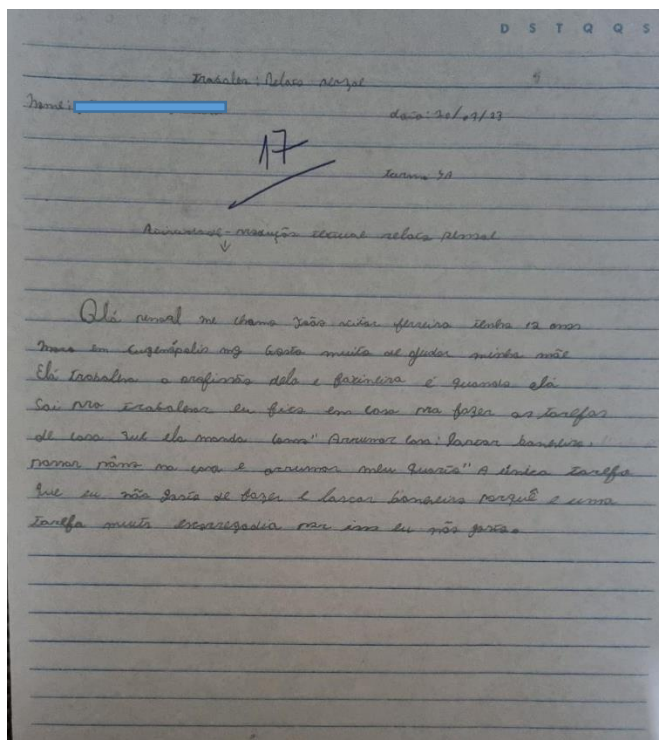 D S T Q Q S
Trabalho: Relato pessoal
Nome:
data: 20/09/23
17
Turma
produção textual relato pessoal
Olá pessoal me chamo João victor ferreira tenho 12 anos
moro em Eugenópolis mg Gosto muito de ajudar minha mãe
Elá trabalha a profissão dela e faxineira é quando elá
Sai pra trabalhar eu fico em casa pra fazer as tarefas
de casa que ela manda como" Arrumar casa; lavar banheiro,
passar pano na casa e arrumar meu quarto" A única tarefa
que eu não gosto de fazer e lavar banheiro porquê e uma
tarefa muito escorregadia por isso eu não gosto.